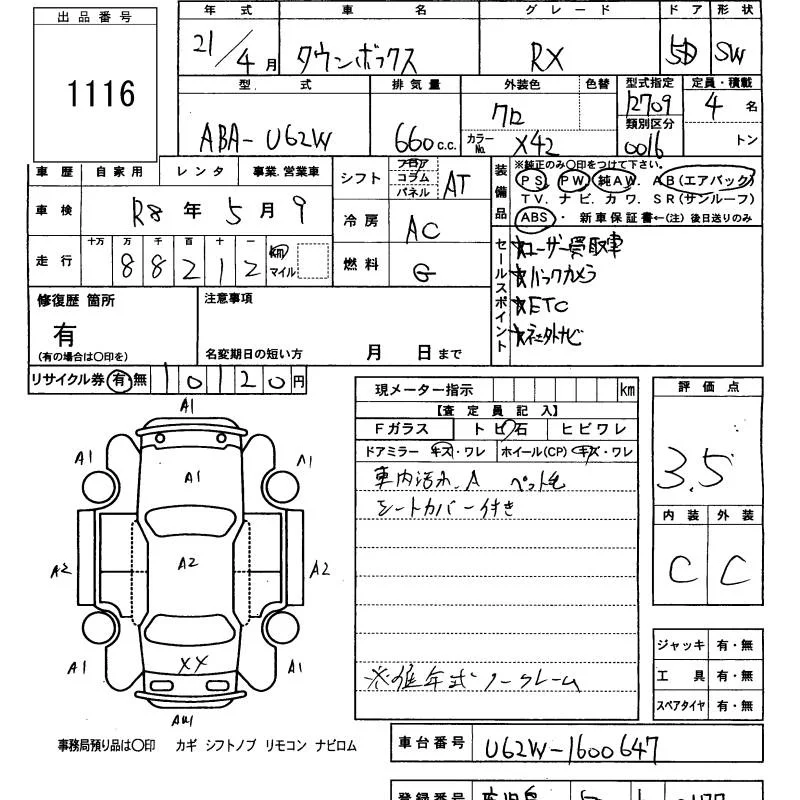 出品番号
1116
年式 車名 グレード ドア 形状
21/4月 タウンボックス RX 5D SW
型式 排気量 外装色 色替 型式指定 定員・積載
ABA-U62W 660c.c. クロ 12709 4名
カラーNo. X42 類別区分 0016 トン
車歴 自家用 レンタ 事業.営業車
車検 R8年5月9
走行 十万 万 千 百 十 一
88212 km マイル
シフト フロア コラム パネル AT
冷房 AC
燃料 G
装備品
※純正のみ○印をつけて下さい。
PS. PW. 純AW. AB(エアバック)
TV. ナビ. カワ. SR(サンルーフ)
ABS・新車保証書←(注)後日送りのみ
セールスポイント
★ユーザー買取車
★バックカメラ
★ETC
★社外ナビ
修復歴 箇所
有
(有の場合は○印を)
注意事項
名変期日の短い方 月 日まで
リサイクル券 有・無 10120円
現メーター指示 km
【査定員記入】
Fガラス トビ石 ヒビワレ
ドアミラー キズ・ワレ ホイール(CP) キズ・ワレ
車内汚れ.A ペット毛
シートカバー付き
※推年式ノークレーム
評価点
3.5
内装 外装
C C
ジャッキ 有・無
工具 有・無
スペアタイヤ 有・無
A1
A1 A1 A1
A2 A2 A2
A1 XX A1
事務局預り品は○印 カギ シフトノブ リモコン ナビロム
車台番号 U62W-1600647
登録番号